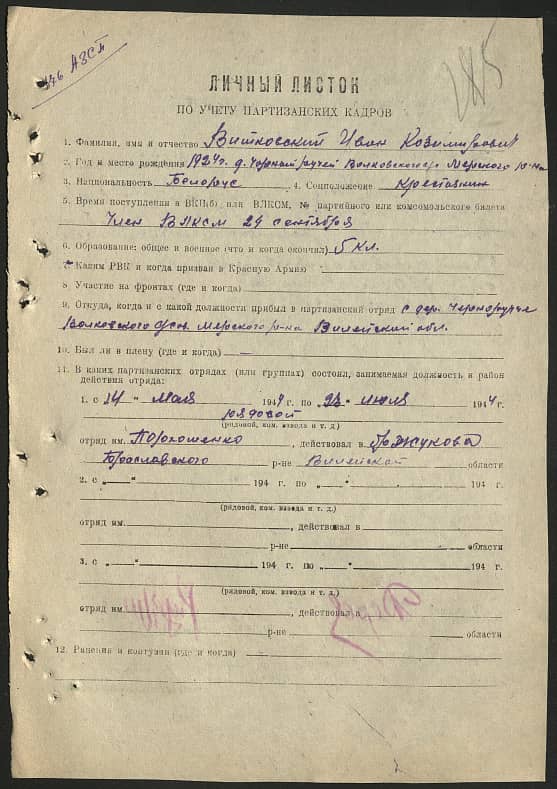 ЛИЧНЫЙ ЛИСТОК
ПО УЧЕТУ ПАРТИЗАНСКИХ КАДРОВ
1. Фамилия, имя и отчество Витковский Иван Козимирович
2. Год и место рождения 1924г. д. Черный ручей Волковского с/с Мерского р-на
3. Национальность Белорус 4. Соцположение Крестьянин
5. Время поступления в ВКП(б) или ВЛКСМ, № партийного или комсомольского билета
Член ВЛКСМ 24 сентября
6. Образование: общее и военное (что и когда окончил) 5 кл.
7. Каким РВК и когда призван в Красную Армию —
8. Участие на фронтах (где и когда)
9. Откуда, когда и с какой должности прибыл в партизанский отряд с дер.
Волковского Мерского р-на Вилейской обл.
10. Был ли в плену (где и когда) —
11. В каких партизанских отрядах (или группах) состоял, занимаемая должность и район
действия отряда:
1. с „14" мая 1944 г. по „23" июля 1944 г.
рядовой
(рядовой, ком. взвода и т. д.)
отряд им. Пархоменко, действовал в бр. Жукова
Браславского р-не Вилейской области
2. с „ — " 194 г. по „ — " 194 г.
(рядовой, ком. взвода и т. д.)
отряд им. , действовал в
р-не области
3. с „ — " 194 г. по „ — " 194 г.
(рядовой, ком. взвода и т. д.)
отряд им. , действовал в
р-не области
12. Ранения и контузии (где и когда)